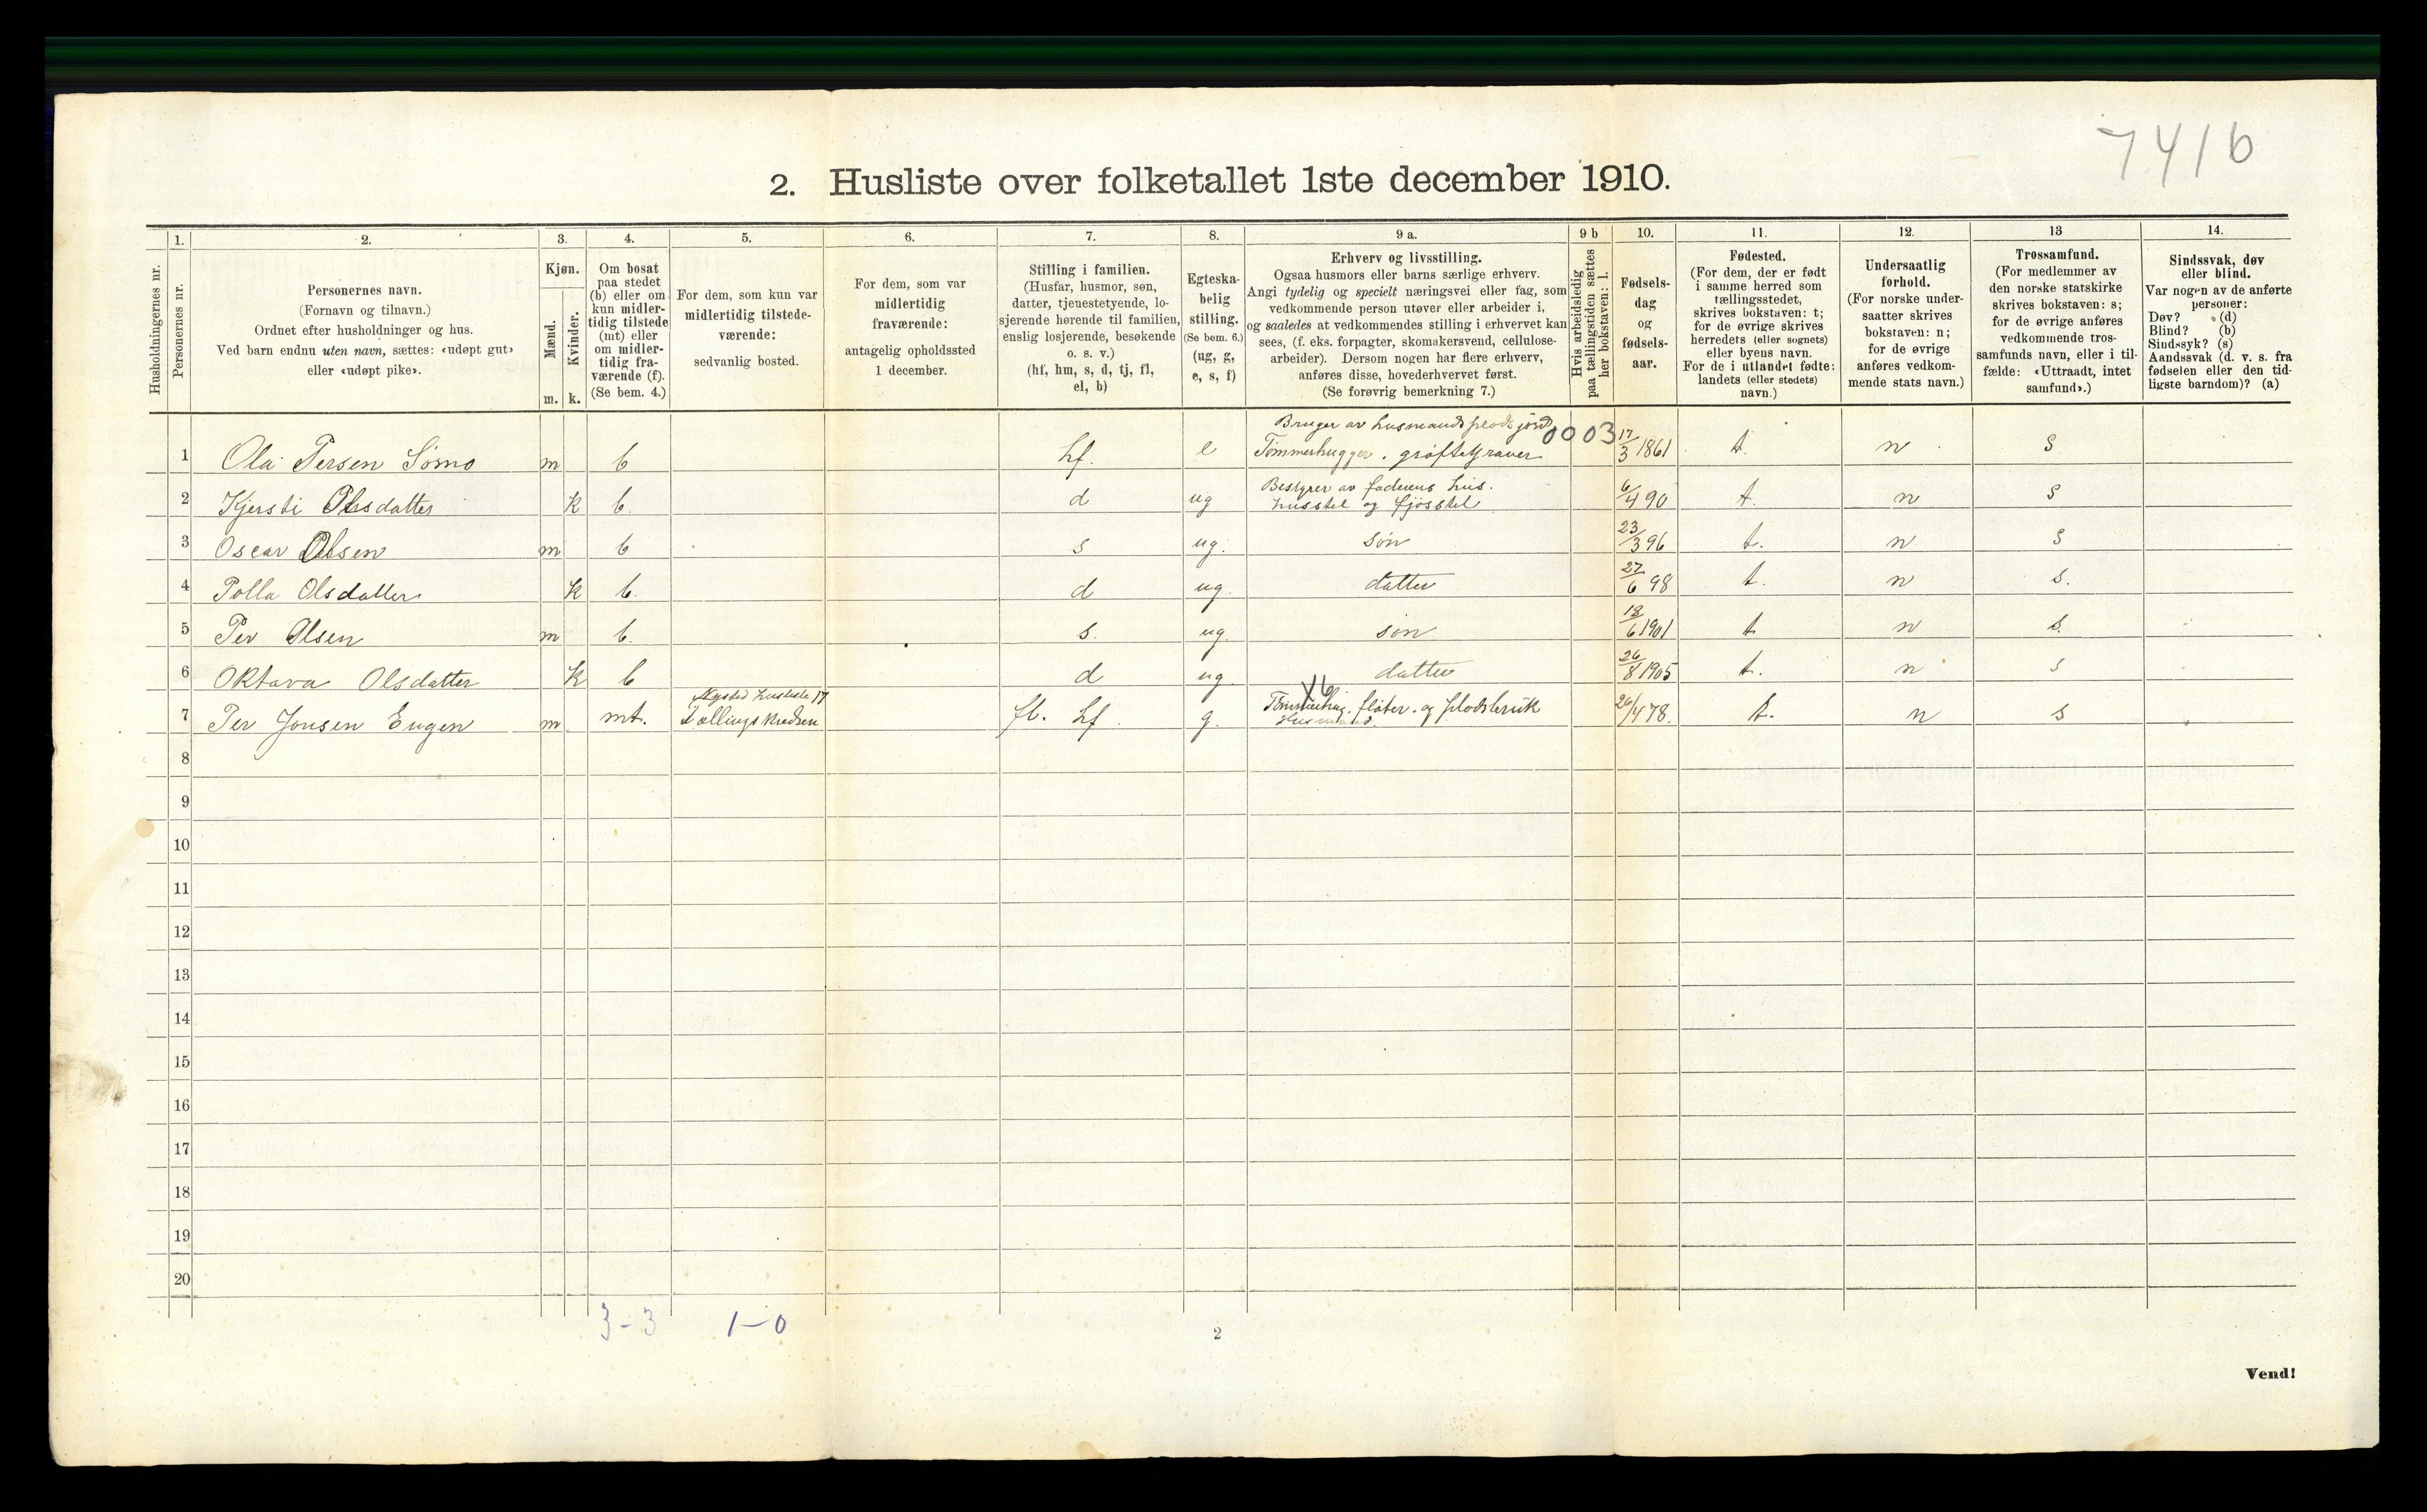 7416
2. Husliste over folketallet 1ste december 1910.
Husholdningernes nr.
1.
Personernes nr.
2.
Personernes navn.
(Fornavn og tilnavn.)
Ordnet efter husholdninger og hus.
Ved barn endnu uten navn, sættes: «udøpt gut»
eller «udøpt pike».
3.
Kjøn.
Mænd.
Kvinder.
m. k.
4.
Om bosat
paa stedet
(b) eller om
kun midler-
tidig tilstede
(mt) eller
om midler-
tidig fra-
værende (f).
(Se bem. 4.)
5.
For dem, som kun var
midlertidig tilstede-
værende:
sedvanlig bosted.
6.
For dem, som var
midlertidig
fraværende:
antagelig opholdssted
1 december.
7.
Stilling i familien.
(Husfar, husmor, søn,
datter, tjenestetyende, lo-
sjerende hørende til familien,
enslig losjerende, besøkende
o. s. v.)
(hf, hm, s, d, tj, fl,
el, b)
8.
Egteska-
belig
stilling.
(Se bem. 6.)
(ug, g,
e, s, f)
9 a.
Erhverv og livsstilling.
Ogsaa husmors eller barns særlige erhverv.
Angi tydelig og specielt næringsvei eller fag, som
vedkommende person utøver eller arbeider i,
og saaledes at vedkommendes stilling i erhvervet kan
sees, (f. eks. forpagter, skomakersvend, cellulose-
arbeider). Dersom nogen har flere erhverv,
anføres disse, hovederhvervet først.
(Se forøvrig bemerkning 7.)
9 b
Hvis arbeidsledig
paa tællingstiden sættes
her bokstaven: l.
10.
Fødsels-
dag
og
fødsels-
aar.
11.
Fødested.
(For dem, der er født
i samme herred som
tællingsstedet,
skrives bokstaven: t;
for de øvrige skrives
herredets (eller sognets)
eller byens navn.
For de i utlandet fødte:
landets (eller stedets)
navn.)
12.
Undersaatlig
forhold.
(For norske under-
saatter skrives
bokstaven: n;
for de øvrige
anføres vedkom-
mende stats navn.)
13
Trossamfund.
(For medlemmer av
den norske statskirke
skrives bokstaven: s;
for de øvrige anføres
vedkommende tros-
samfunds navn, eller i til-
fælde: «Uttraadt, intet
samfund».)
14.
Sindssvak, døv
eller blind.
Var nogen av de anførte
personer:
Døv? (d)
Blind? (b)
Sindssyk? (s)
Aandssvak (d. v. s. fra
fødselen eller den tid-
ligste barndom)? (a)
Bruger av husmandsplads jord 0003
1 Ola Persen Sømo m b hf. e Tømmerhugger. grøftegraver 17/3 1861 t. n s
Bestyrer av faderens hus.
2 Kjersti Olsdatter k b. d ug husstel og fjøsstel 6/4 90 t. n s
3 Oscar Olsen m b s ug. søn 23/3 96 t. n s
4 Polla Olsdatter k b. d ug. datter 27/6 98 t. n s.
5 Per Olsen m b. s. ug. søn 18/6 1901 t n s.
6 Oktava Olsdatter k b d ug. datter 26/8 1905 t. n s
Nysted Husliste 17 X6
7 Per Jonsen Engen m mt. Tællingskredsen fl. hf. g. Tømmerhug. fløter. og pladsbruk 26/4 78. t. n s
Husmand
8
9
10
11
12
13
14
15
16
17
18
19
20
3-3 1-0
2
Vend!